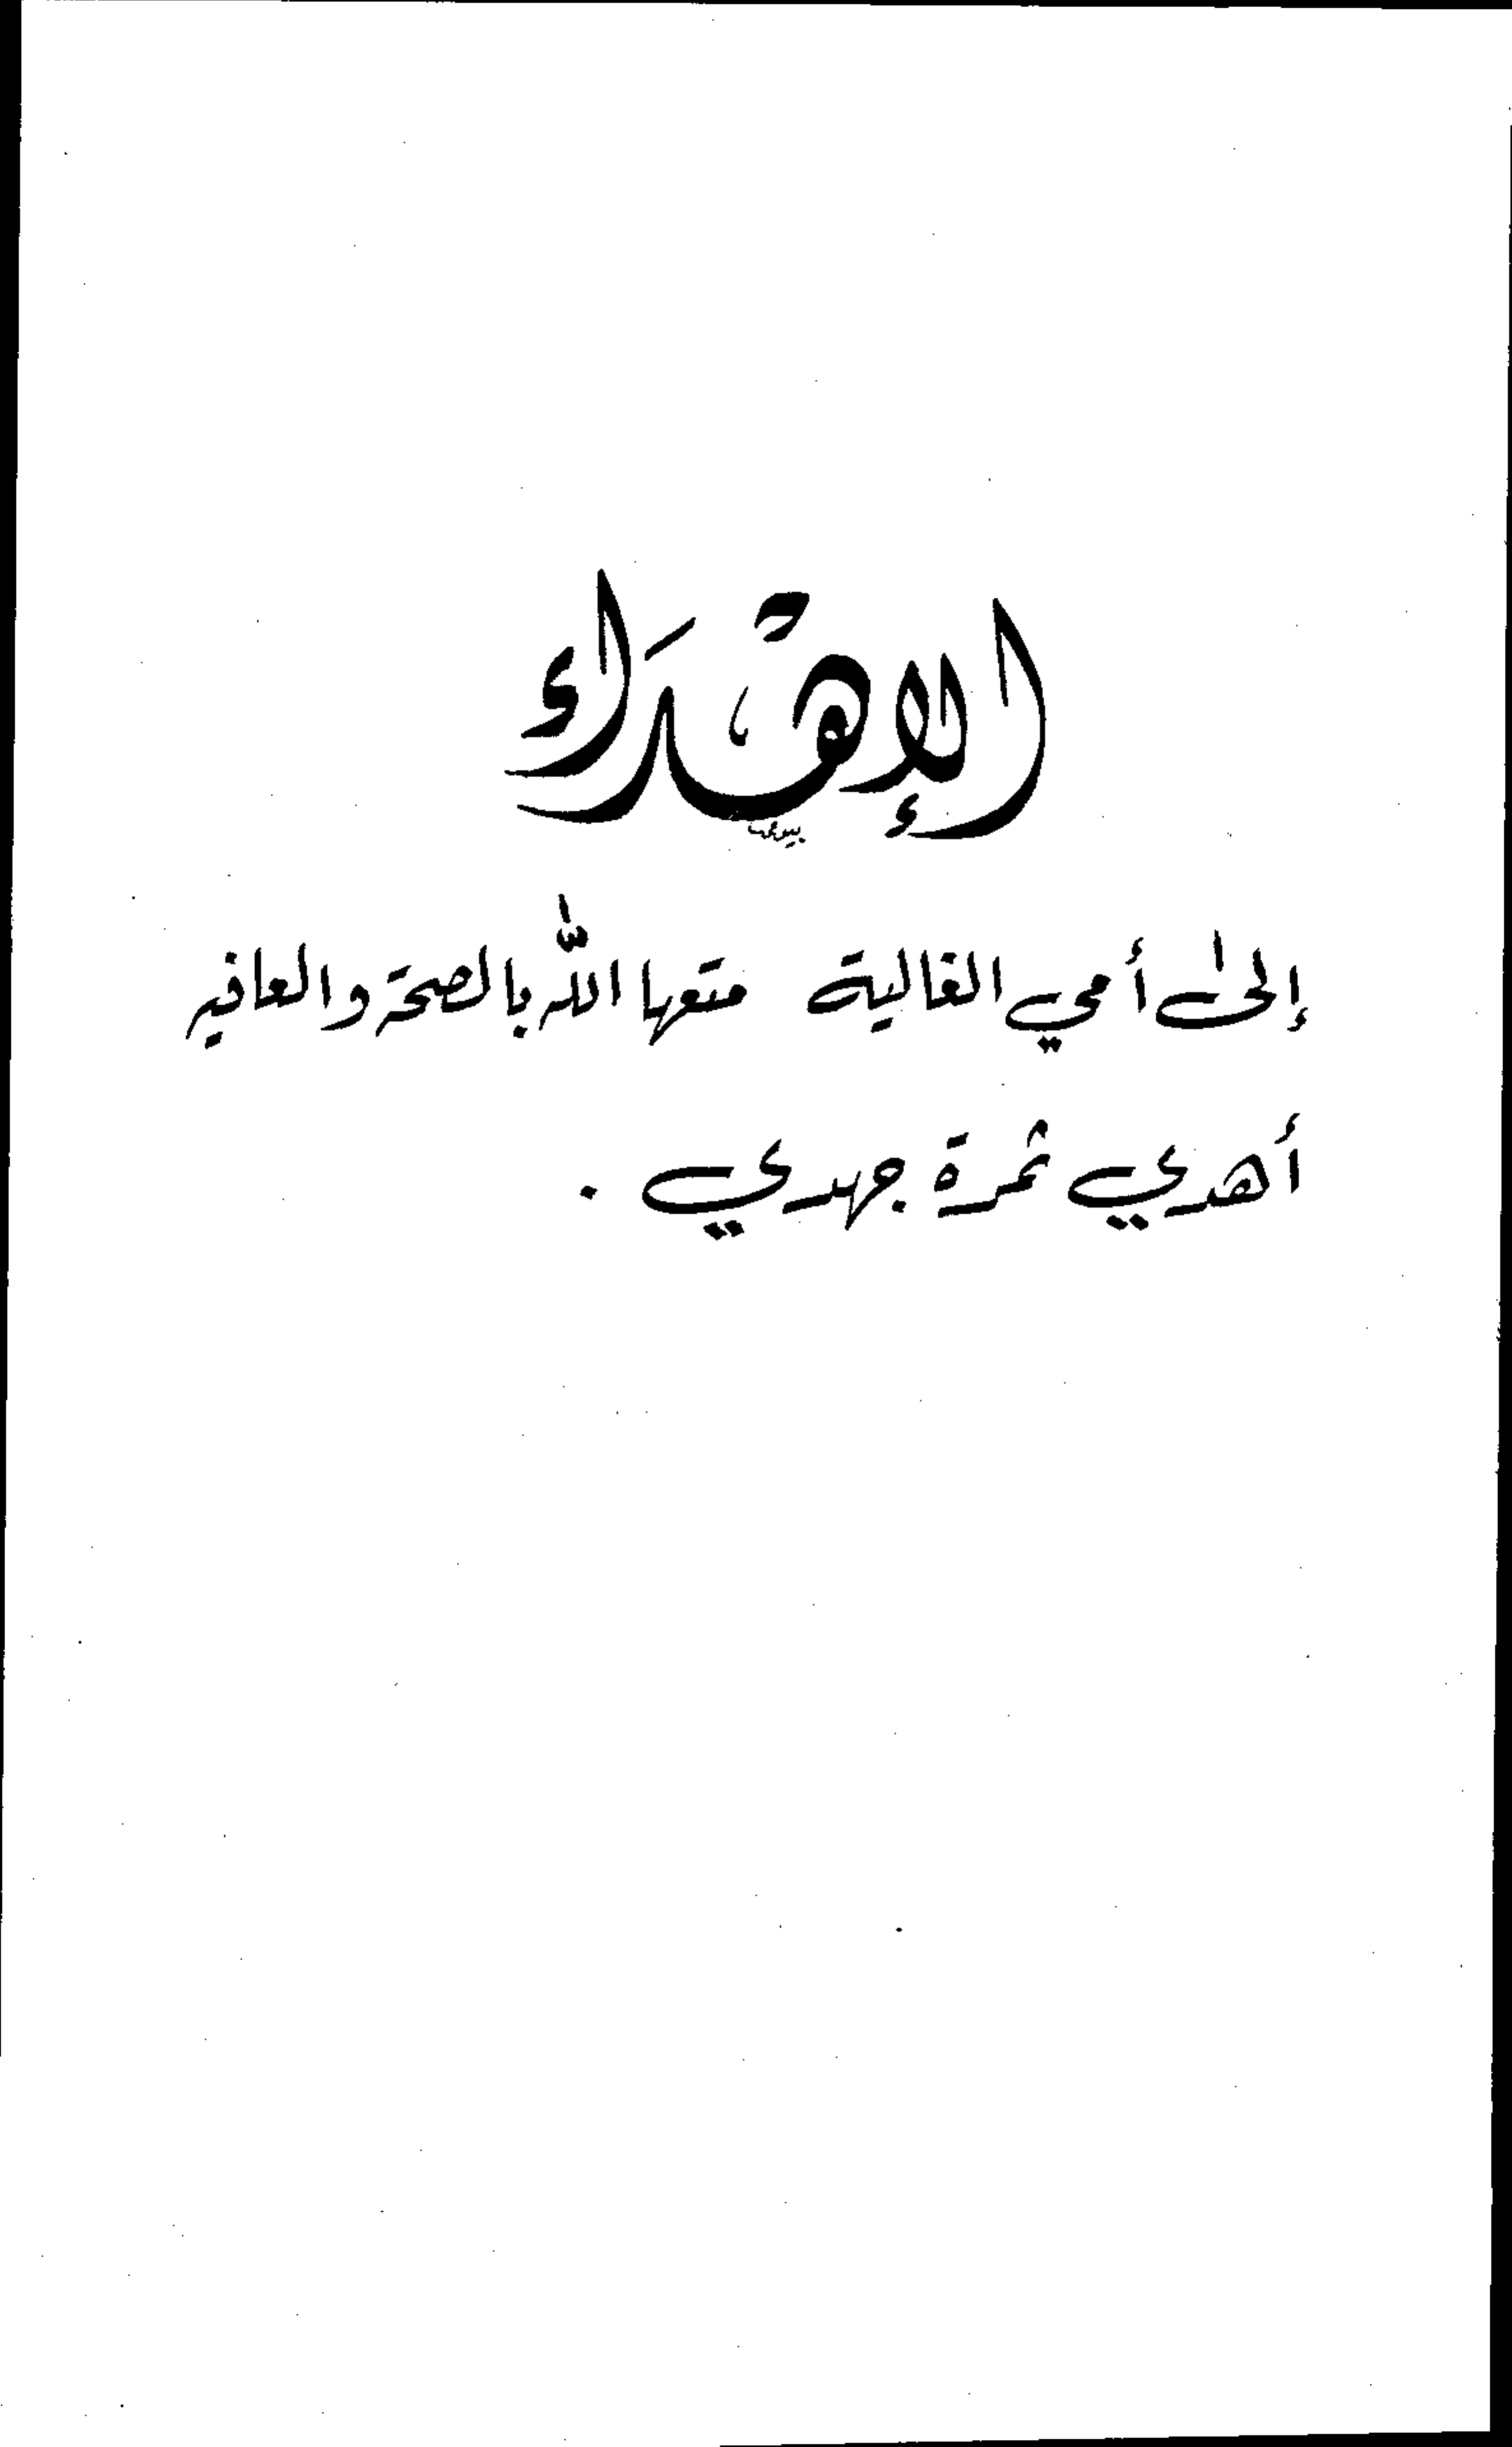 الإهداء
إلى أمي الغالية متعها الله بالصحة والعافية
أهدي ثمرة جهدي .